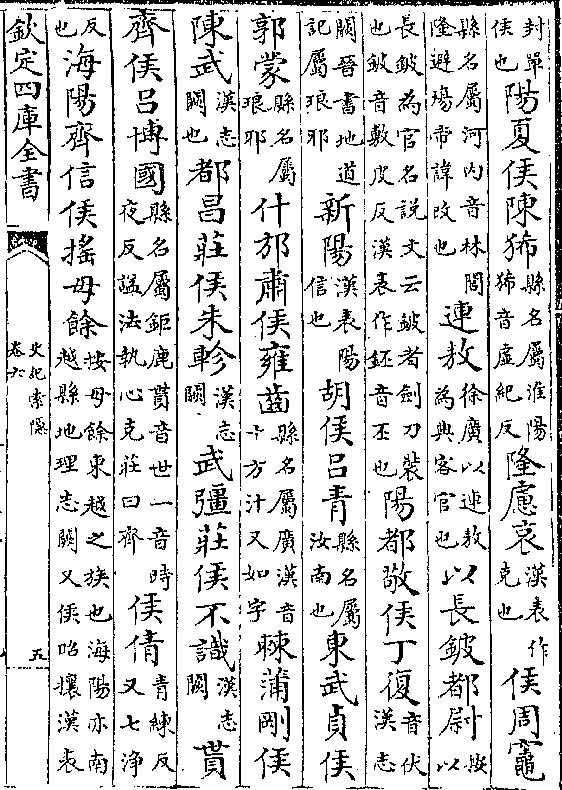 封單侯也陽夏侯陳狶縣名屬淮陽狶音虛紀反隆慮哀漢表作克也侯周竈
縣名屬河內音林閭隆避殤帝諱改也連敖徐廣以連敖為典客官也以長鈹都尉按以
長鈹為官名說文云鈹者劍刀裝也鈹音敷皮反漢表作鉟音丕也陽都敬侯丁復音伏漢志
闕晉書地道記屬琅邪新陽漢表陽信也胡侯呂青縣名屬汝南也東武貞侯
郭蒙縣名屬琅邪什邡肅侯雍齒縣名屬廣漢音十方汁又如字蒲剛侯
陳武漢志闕也都昌莊侯朱軫漢志闕武彊莊侯不識漢志闕貰
齊侯呂博國縣名屬鉅鹿貰音世一音時夜反諡法執心克莊曰齊侯倩青練反又七淨
反也海陽齊信侯搖毋餘按毋餘東越之族也海陽亦南越縣地理志闕又侯昭攘漢表
欽定四庫全書
史記索隱
卷六
五